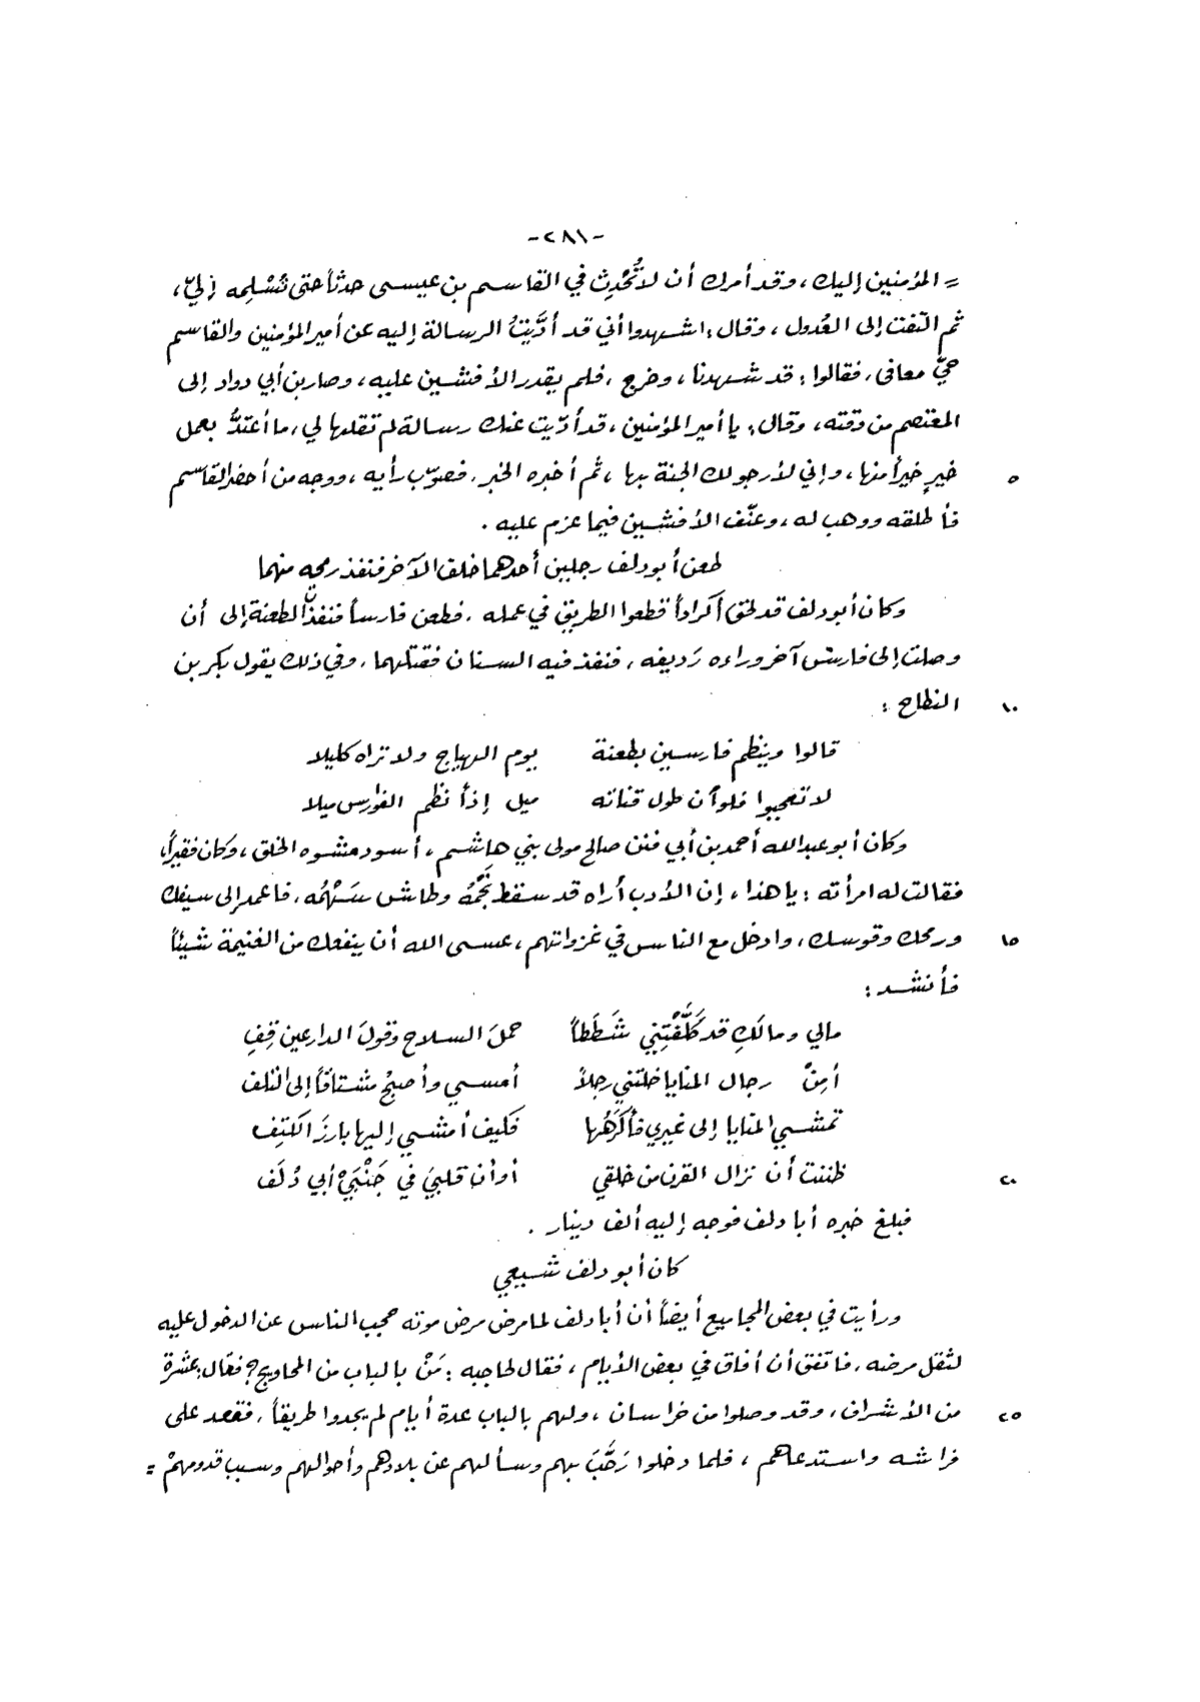 -٢٨١-
= المؤمنين إليك، وقد أمرك أن لا تُحْدِث في القاسم بن عيسى حدثاً حتى تُسْلِمه إليّ،
ثم التفت إلى العُدول، وقال: اشهدوا أني قد أدَّيتُ الرسالة إليه عن أمير المؤمنين والقاسم
حيّ معافى، فقالوا: قد شهدنا، وخرج، فلم يقدر الأفشين عليه، وصار بن أبي دواد إلى
المعتصم من وقته، وقال: يا أمير المؤمنين، قد أدّيت عنك رسالة لم تقلها لي، ما أعتدُّ بعمل
خيرٍ خيراً منها، وإني لأرجو لك الجنة بها، ثم أخبره الخبر، فصوّب رأيه، ووجه من أحضر القاسم ٥
فأطلقه ووهب له، وعنّف الأفشين فيما عزم عليه.
طعن أبو دلف رجلين أحدهما خلف الآخر فنفذ رمحه منهما
وكان أبو دلف قد لحق أكراداً قطعوا الطريق في عمله، فطعن فارساً فنفذت الطعنة إلى أن
وصلت إلى فارس آخر وراءه رَديفه، فنفذ فيه السنان فقتلهما، وفي ذلك يقول بكر بن
النطاح: ١٠
قالوا وينظم فارسين بطعنة يوم الهياج ولا تراه كليلا
لا تعجبوا فلو أن طول قناته ميل إذاً نظم الفوارس ميلا
وكان أبو عبد الله أحمد بن أبي فنن صالح مولى بني هاشم، أسود مشوه الخلق، وكان فقيراً،
فقالت له امرأته: يا هذا، إن الأدب أراه قد سقط نَجْمُهُ وطاش سَهْمُه، فاعمد إلى سيفك
ورمحك وقوسك، وادخل مع الناس في غزواتهم، عسى الله أن ينفعك من الغنيمة شيئاً ١٥
فأنشد:
مالي ومالَكِ قد كَلَّفْتِني شَطَطاً حملَ السلاح وقولَ الدارعين قِفِ
أمِنْ رجال المنايا خلتني رجلاً أمسي وأصبحُ مشتاقاً إلى التلف
تمشي المنايا إلى غيري فأكرَهُها فكيف أمشي إليها بارزَ الكتِف
ظننت أن نزال القرن من خلقي أو أن قلبيَ في جَنْبَيْ أبي دُلَف ٢٠
فبلغ خبره أبا دلف فوجه إليه ألف دينار.
كان أبو دلف شيعي
ورأيت في بعض المجاميع أيضاً أن أبا دلف لما مرض مرض موته حجب الناس عن الدخول عليه
لثقل مرضه، فاتفق أن أفاق في بعض الأيام، فقال لحاجبه: مَنْ بالباب من المحاويج؟ فقال: عشرة
من الأشراف، وقد وصلوا من خراسان، ولهم بالباب عدة أيام لم يجدوا طريقاً، فقعد على ٢٥
فراشه واستدعاهم، فلما دخلوا رَحَّبَ بهم وسألهم عن بلادهم وأحوالهم وسبب قدومهمْ =